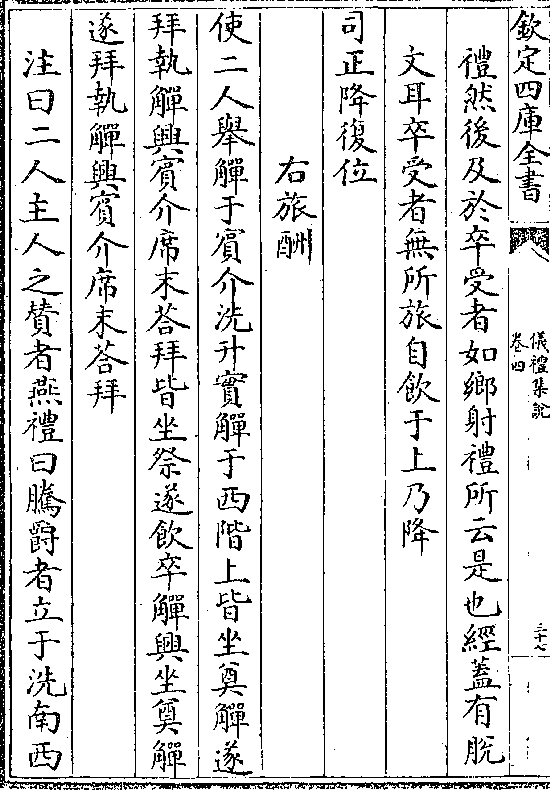 欽定四庫全書
儀禮集說
卷四
三十七
禮然後及於卒受者如鄉射禮所云是也經蓋有脫
文耳卒受者無所旅自飲于上乃降
司正降復位
右旅酬
使二人舉觶于賓介洗升實觶于西階上皆坐奠觶遂
拜執觶興賓介席末荅拜皆坐祭遂飲卒觶興坐奠觶
遂拜執觶興賓介席末荅拜
注曰二人主人之贊者燕禮曰騰爵者立于洗南西